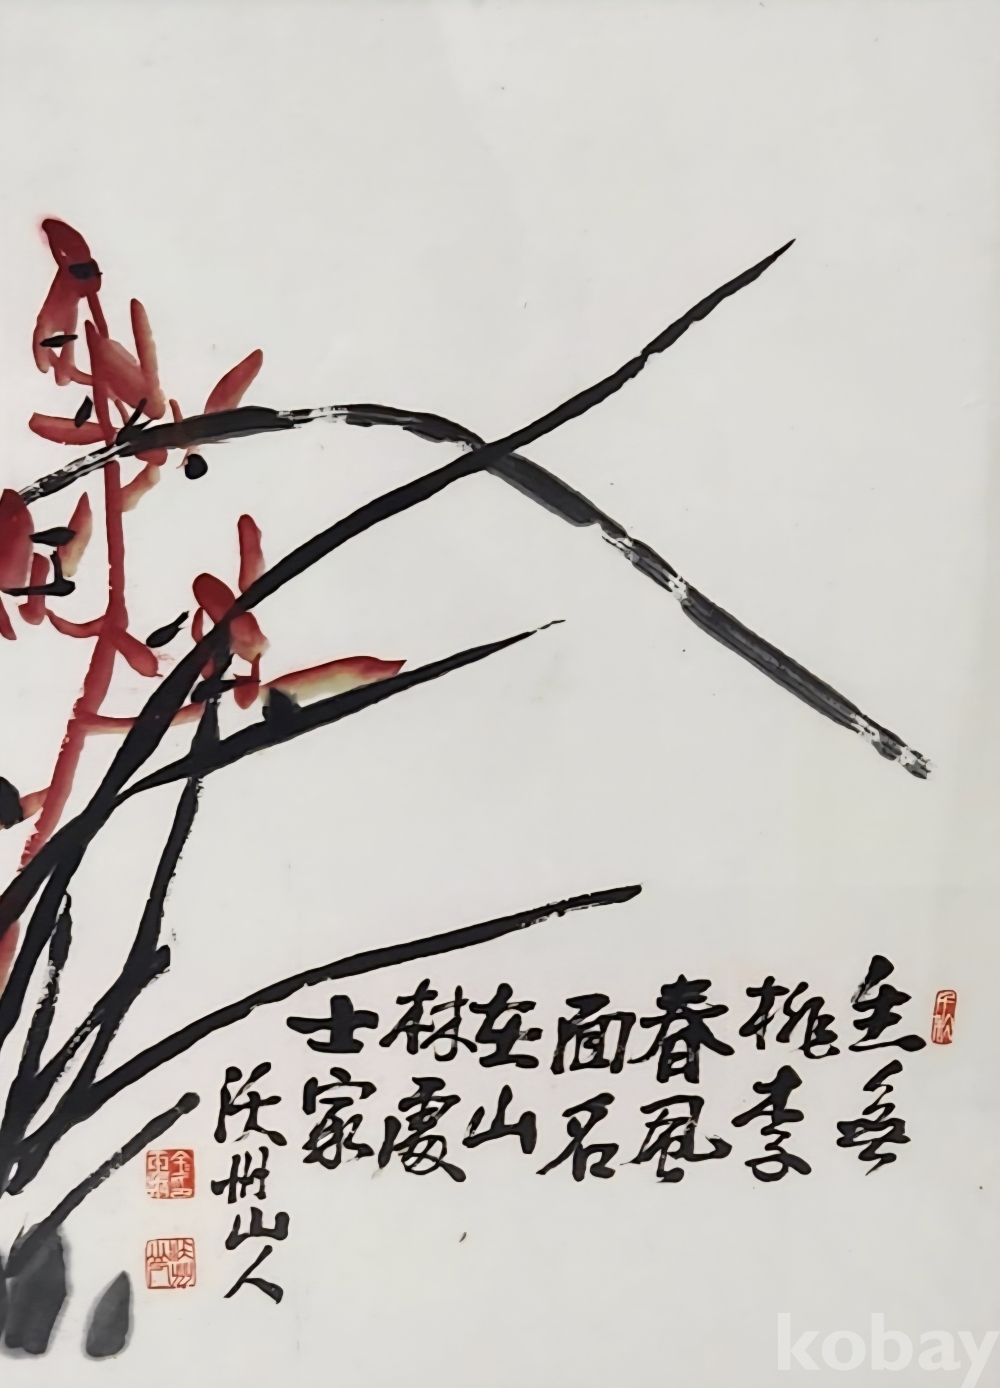 生無
桃李
春風
面名
在山
林處
士家
沃州山人
kobay